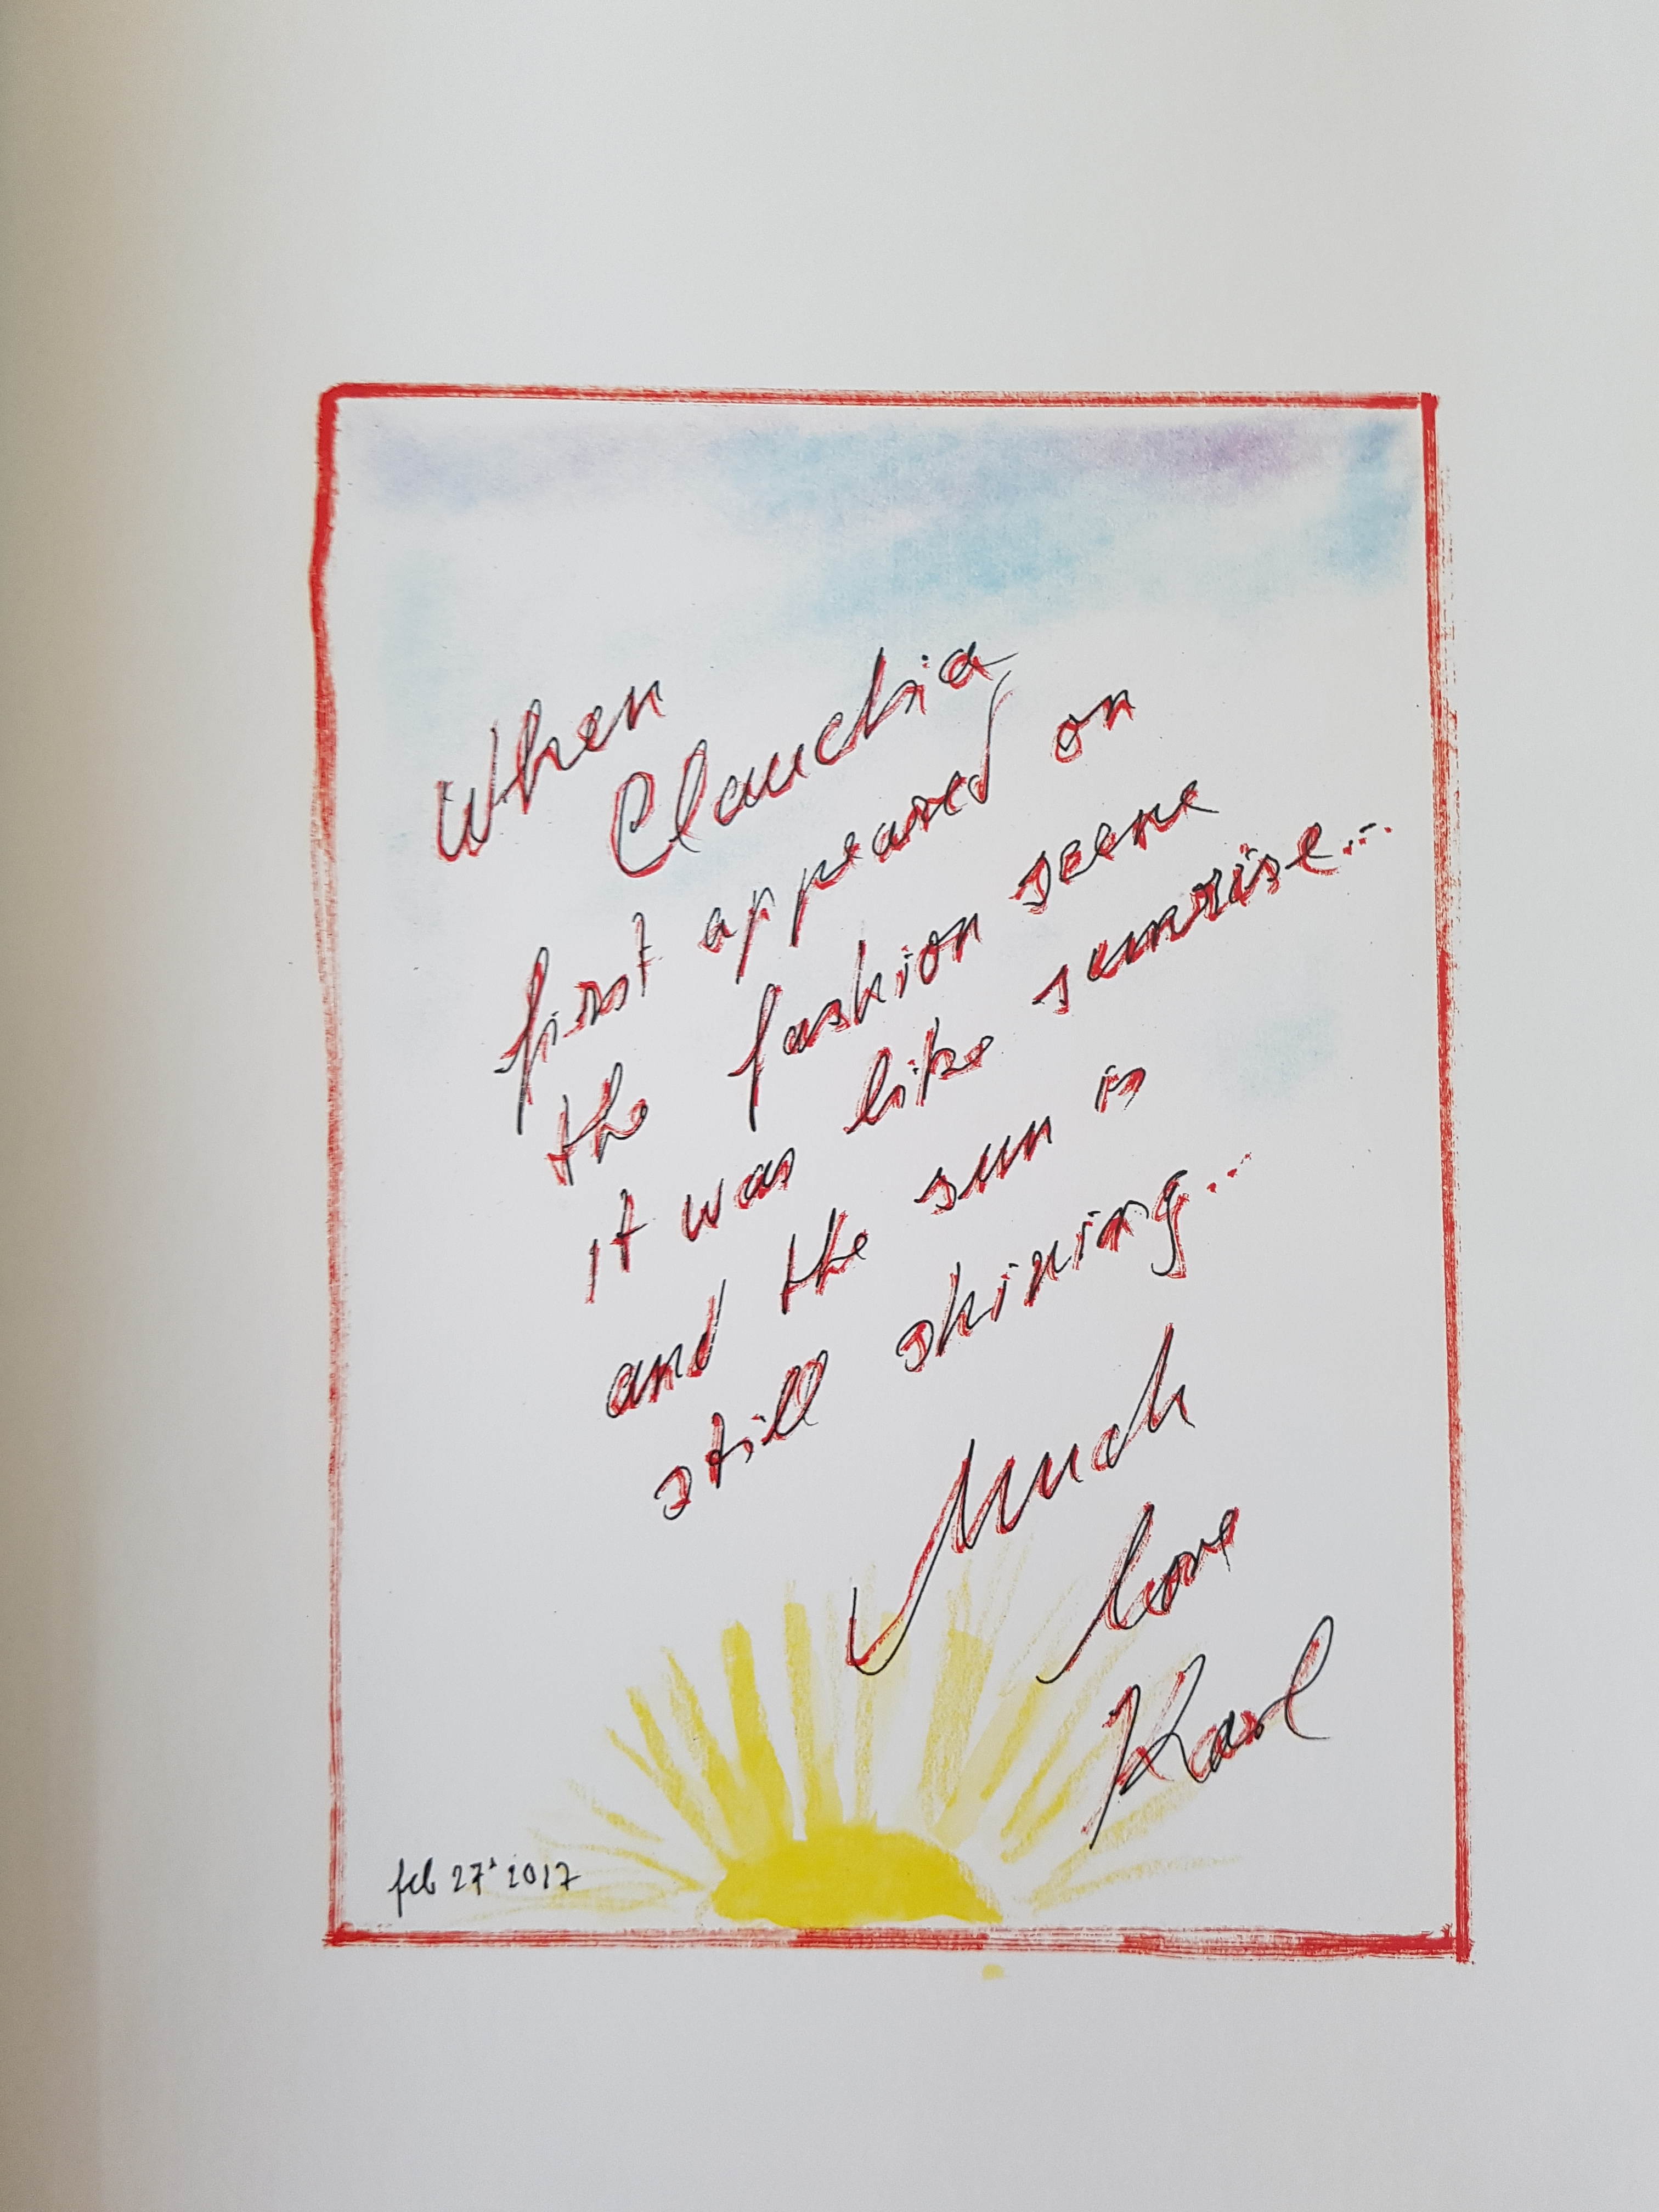 When
Claudia
first appeared on
the fashion scene
it was like sunrise...
and the sun is
still shining...
Much
love
Karl
feb 27' 2017